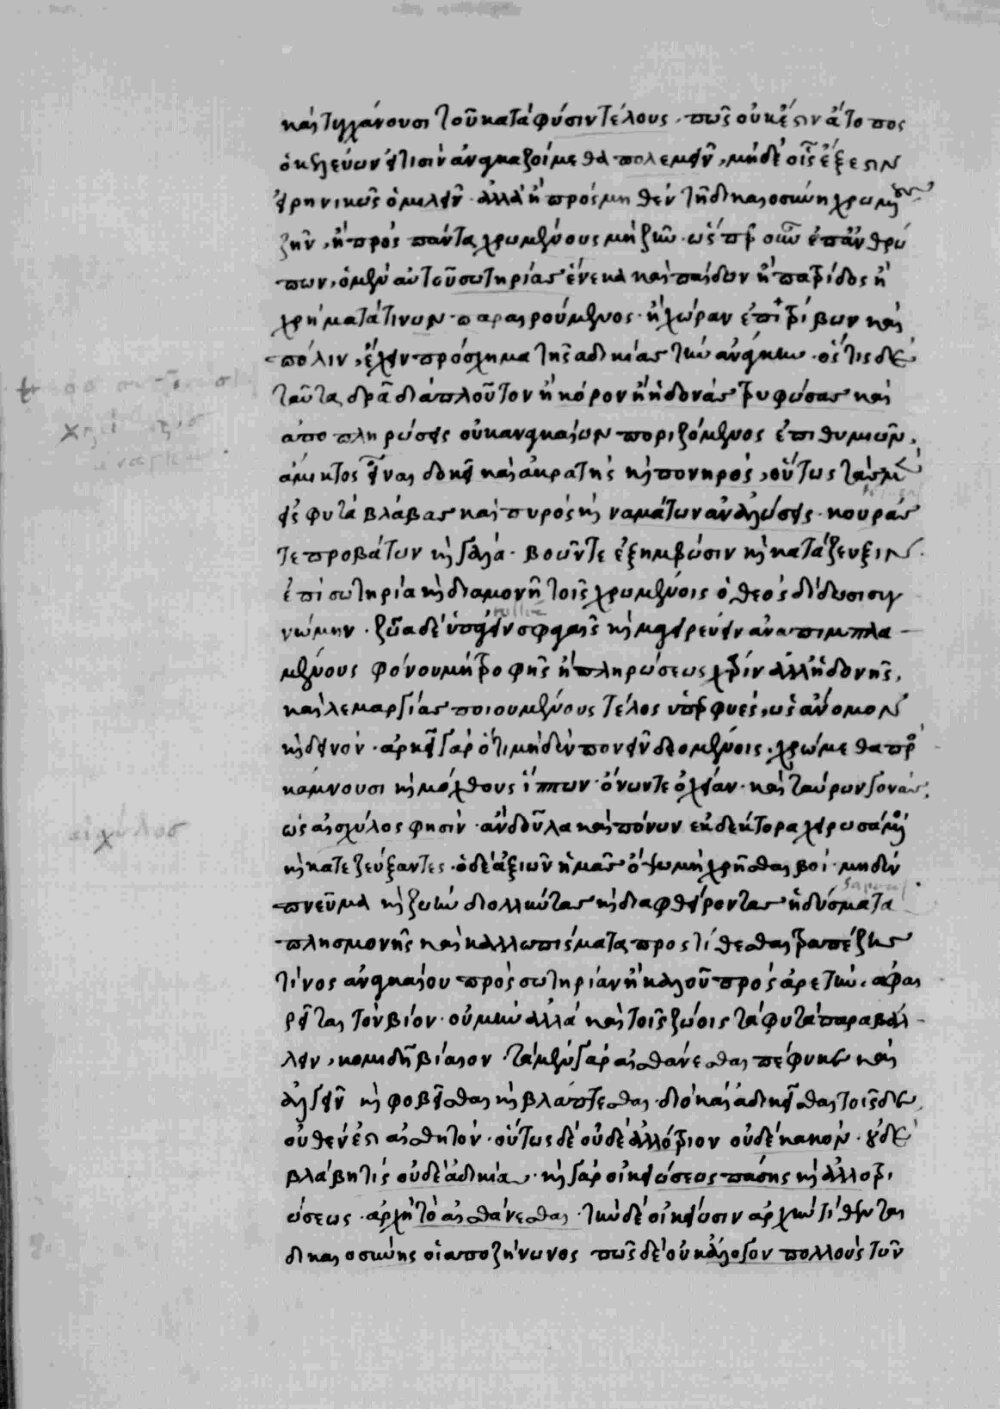 καὶ τυγχάνουσι τοῦ κατὰ φύσιν τέλους. πῶς οὐκ ἔστιν ἄτοπος
ὁ κελεύων ᾧτισιν ἀναγκαζόμεθα πολεμεῖν, μηδὲ οἷς ἔξεστιν
εἰρηνικῶς ὁμιλεῖν. ἀλλὰ ἢ πρὸς μηθὲν τῇ δικαιοσύνῃ χρωμένους
ζῆν, ἢ πρὸς πάντα χρωμένους μὴ ζῆν. ὥσπερ οὖν ἐπ' ἀνθρώ
πων, ὁ μὲν αὑτοῦ σωτηρίας ἕνεκα καὶ παίδων ἢ πατρίδος ἢ
χρήματά τινων παραιρούμενος. ἢ χώραν ἐπιτρίβων καὶ
πόλιν, ἔχειν πρόσχημα τῆς ἀδικίας τὴν ἀνάγκην. ὅστις δὲ
ταῦτα δρᾷ διὰ πλοῦτον ἢ κόρον ἢ ἡδονὰς τρυφώσας καὶ
ἀποπληρώσεις οὐκ ἀναγκαίων ποριζόμενος ἐπιθυμιῶν,
ἄμικτος εἶναι δοκεῖ καὶ ἀκρατὴς καὶ πονηρός, οὕτως τὰς μὲν
εἰς φυτὰ βλάβας καὶ πυρὸς καὶ ναμάτων ἀναλώσεις. κουράς
τε προβάτων καὶ γάλα. βοῶν τε ἐξημέρωσιν καὶ κατάζευξιν
ἐπὶ σωτηρίᾳ καὶ διαμονῇ τοῖς χρωμένοις ὁ θεὸς δίδωσι συγ
νώμην. ζῷα δὲ ὑπάγειν σφαγαῖς καὶ μαγειρεύειν ἀναπιμπλα
μένους φόνου μὴ τροφῆς ἢ πληρώσεως χάριν ἀλλ' ἡδονῆς,
καὶ λαιμαργίας ποιουμένους τέλος ὑπερφυὲς, ὡς ἄνομον
καὶ δεινόν. ἀρκεῖ γὰρ ὅτι μηδὲν πονεῖν δεομένοις. χρώμεθα προ
κάμνουσι καὶ μόχθους ἵππων. ὄνων τε ὀχείαν. καὶ ταύρων γονὰς,
ὡς αἰσχύλος φησίν. ἀντίδουλα καὶ πόνων ἐκδέκτορα χειρωσάμενοι
καὶ καταζεύξαντες. ὁ δὲ ἀξιῶν ἡμᾶς ὄψῳ μὴ χρῆσθαι βοΐ. μηδὲν
πνεῦμα καὶ ζωὴν διολλύντας καὶ διαφθείροντας ἡδύσματα
πλησμονῆς καὶ καλλωπίσματα προστίθεσθαι τραπέζης
τίνος ἀναγκαίου πρὸς σωτηρίαν ἢ καλοῦ πρὸς ἀρετὴν, ἀφαι
ρεῖται τὸν βίον. οὐ μὴν ἀλλὰ καὶ τοῖς ζῴοις τὰ φυτὰ παραβάλ
λειν, κομιδῇ βίαιον. τὰ μὲν γὰρ αἰσθάνεσθαι πέφυκε καὶ
ἀλγεῖν καὶ φοβεῖσθαι καὶ βλάπτεσθαι. διὸ καὶ ἀδικεῖσθαι τοῖς δὲ
οὐθέν ἐστι αἰσθητόν. οὕτως δὲ οὐδὲ ἀλλότριον οὐδὲ κακόν. οὐδὲ
βλάβη τις οὐδὲ ἀδικία. καὶ γὰρ οἰκειώσεως πάσης καὶ ἀλλοτρι
ώσεως. ἀρχὴ τὸ αἰσθάνεσθαι. τὴν δὲ οἰκείωσιν ἀρχὴν τίθενται
δικαιοσύνης οἱ ἀπὸ ζήνωνος πῶς δὲ οὐκ ἄλογον πολλοὺς τῶν
αἰσχύλος